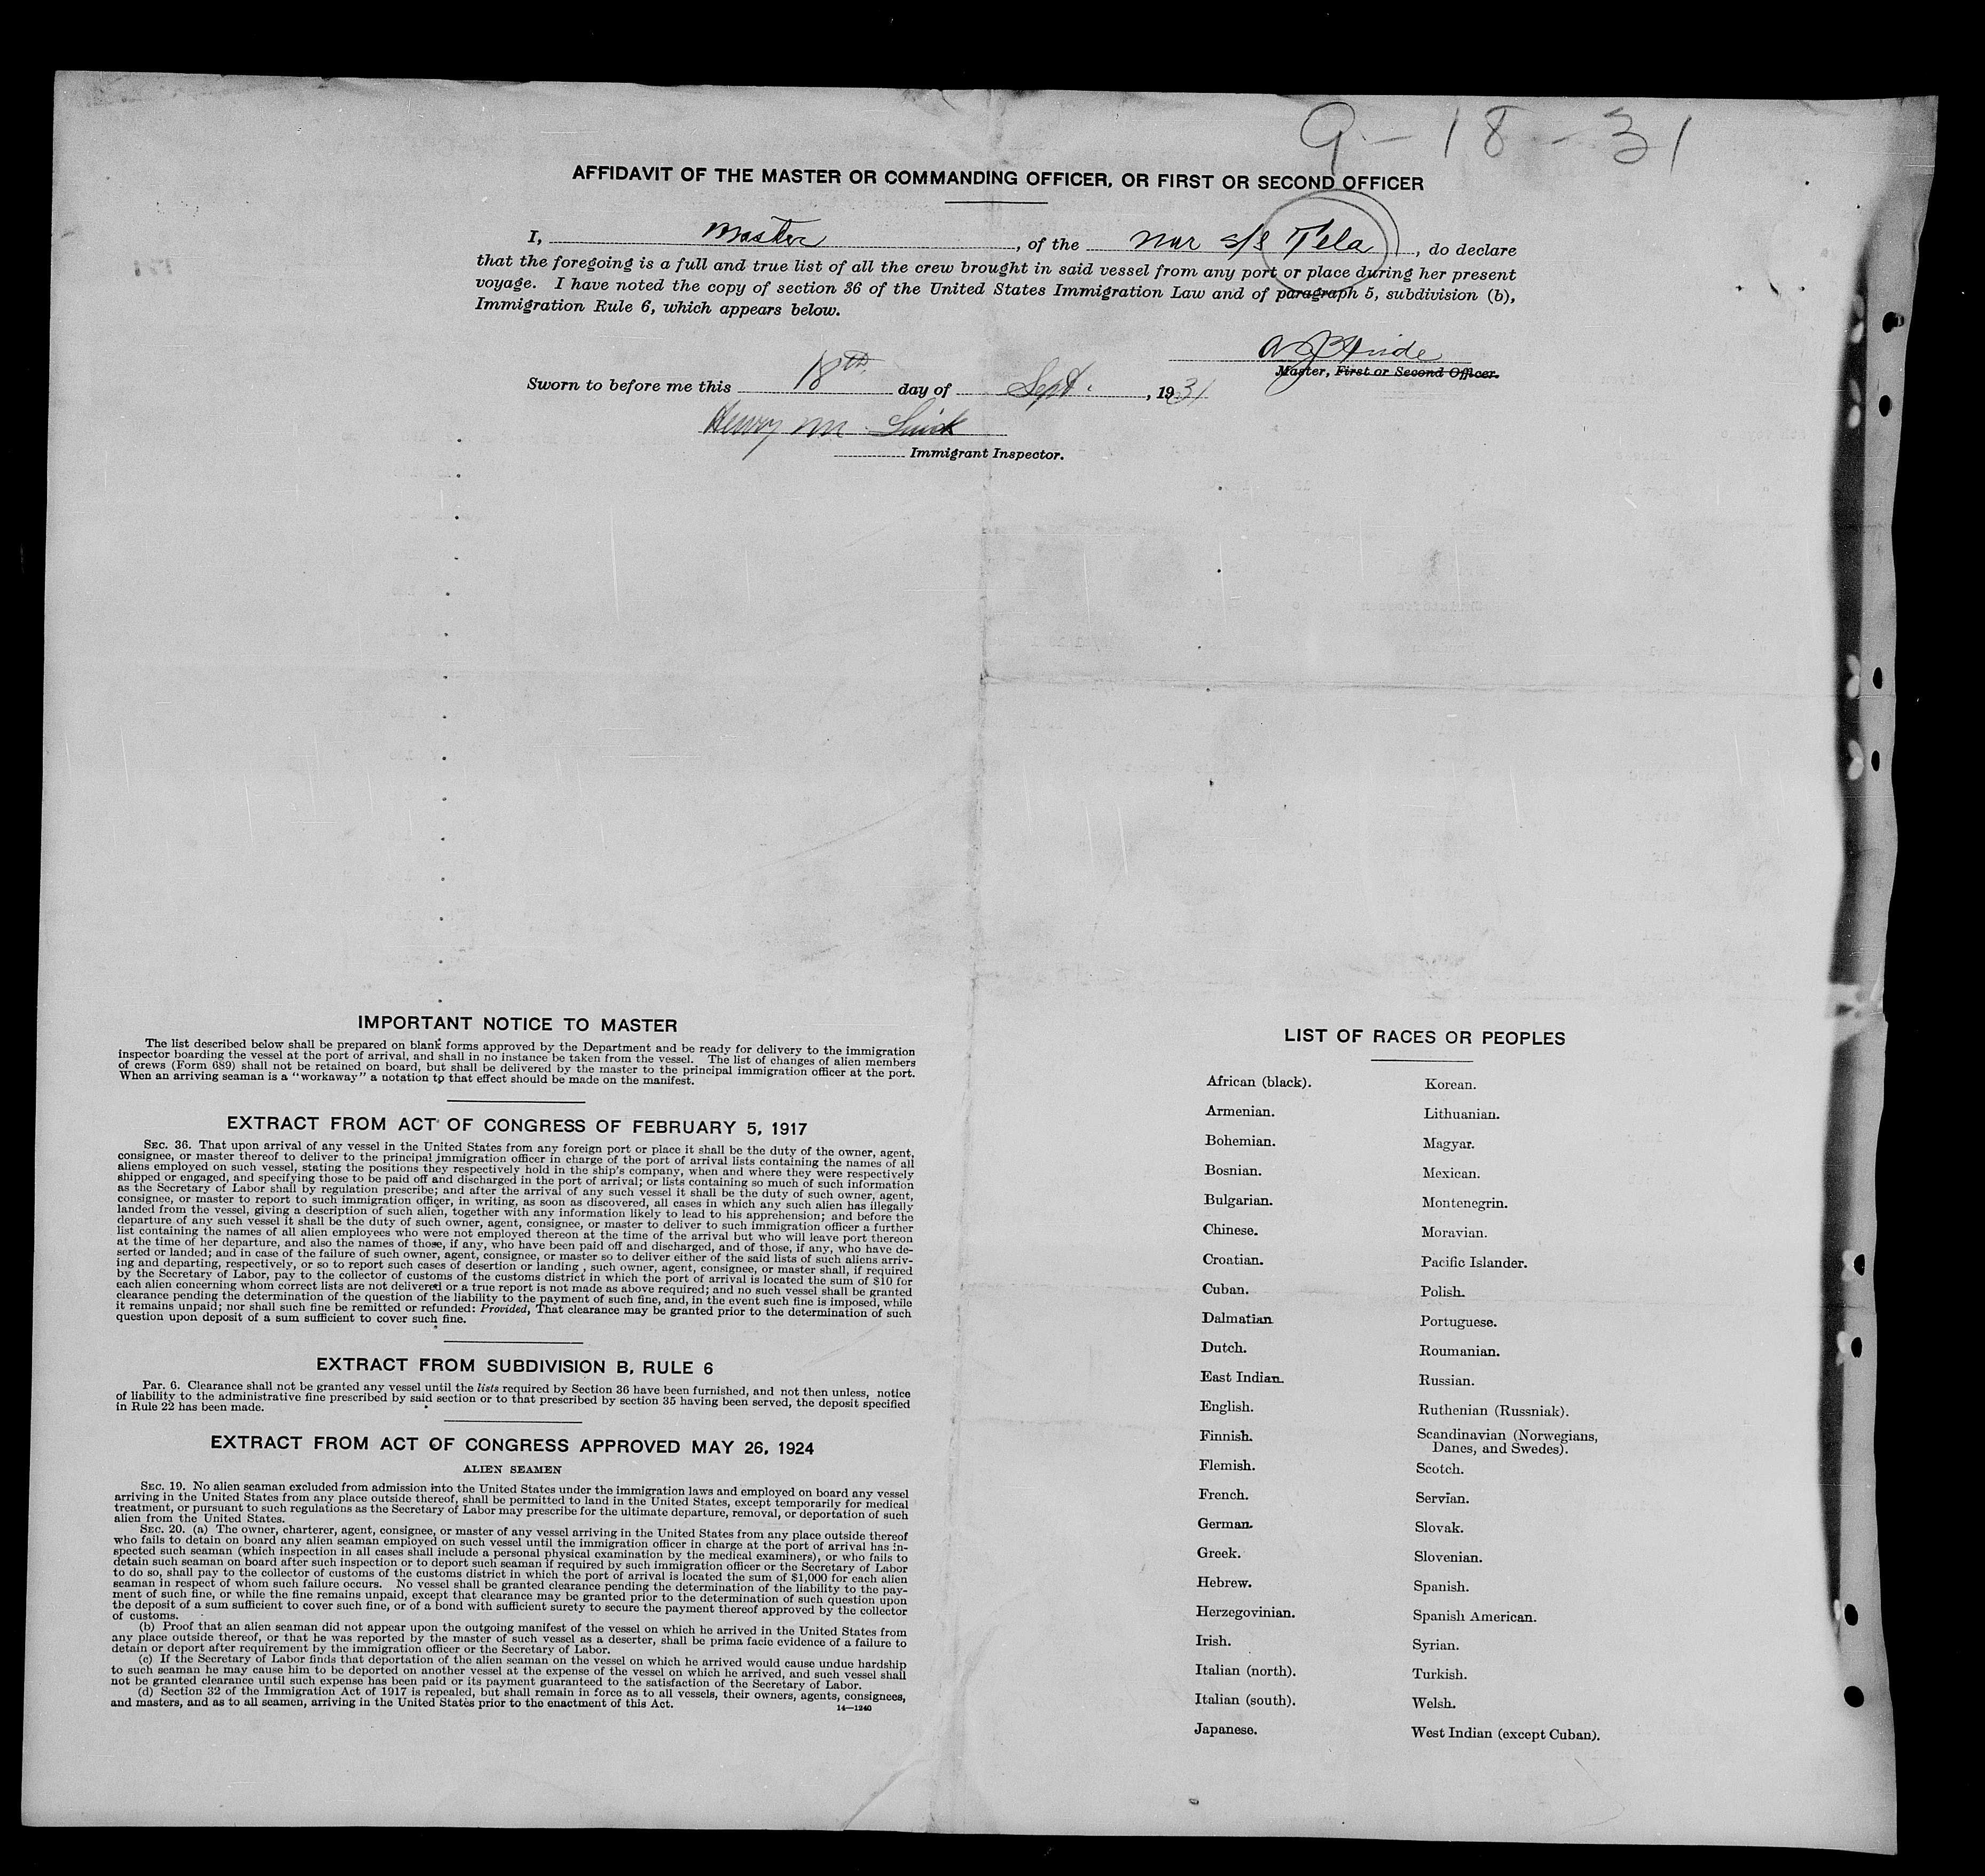 9-18-31
AFFIDAVIT OF THE MASTER OR COMMANDING OFFICER, OR FIRST OR SECOND OFFICER
I, Master, of the Nor s/s Tela, do declare
that the foregoing is a full and true list of all the crew brought in said vessel from any port or place during her present
voyage. I have noted the copy of section 36 of the United States Immigration Law and of paragraph 5, subdivision (b),
Immigration Rule 6, which appears below.
Master, First or Second Officer.
Sworn to before me this 18th day of Sept., 1931
Henry M
Immigrant Inspector.
IMPORTANT NOTICE TO MASTER
The list described below shall be prepared on blank forms approved by the Department and be ready for delivery to the immigration
inspector boarding the vessel at the port of arrival, and shall in no instance be taken from the vessel. The list of changes of alien members
of crews (Form 689) shall not be retained on board, but shall be delivered by the master to the principal immigration officer at the port.
When an arriving seaman is a "workaway" a notation to that effect should be made on the manifest.
EXTRACT FROM ACT OF CONGRESS OF FEBRUARY 5, 1917
SEC. 36. That upon arrival of any vessel in the United States from any foreign port or place it shall be the duty of the owner, agent,
consignee, or master thereof to deliver to the principal immigration officer in charge of the port of arrival lists containing the names of all
aliens employed on such vessel, stating the positions they respectively hold in the ship's company, when and where they were respectively
shipped or engaged, and specifying those to be paid off and discharged in the port of arrival; or lists containing so much of such information
as the Secretary of Labor shall by regulation prescribe; and after the arrival of any such vessel it shall be the duty of such owner, agent,
consignee, or master to report to such immigration officer, in writing, as soon as discovered, all cases in which any such alien has illegally
landed from the vessel, giving a description of such alien, together with any information likely to lead to his apprehension; and before the
departure of any such vessel it shall be the duty of such owner, agent, consignee, or master to deliver to such immigration officer a further
list containing the names of all alien employees who were not employed thereon at the time of the arrival but who will leave port thereon
at the time of her departure, and also the names of those, if any, who have been paid off and discharged, and of those, if any, who have de-
serted or landed; and in case of the failure of such owner, agent, consignee, or master so to deliver either of the said lists of such aliens arriv-
ing and departing, respectively, or so to report such cases of desertion or landing, such owner, agent, consignee, or master shall, if required
by the Secretary of Labor, pay to the collector of customs of the customs district in which the port of arrival is located the sum of $10 for
each alien concerning whom correct lists are not delivered or a true report is not made as above required; and no such vessel shall be granted
clearance pending the determination of the question of the liability to the payment of such fine, and, in the event such fine is imposed, while
it remains unpaid; nor shall such fine be remitted or refunded: Provided, That clearance may be granted prior to the determination of such
question upon deposit of a sum sufficient to cover such fine.
EXTRACT FROM SUBDIVISION B, RULE 6
PAR. 6. Clearance shall not be granted any vessel until the lists required by Section 36 have been furnished, and not then unless, notice
of liability to the administrative fine prescribed by said section or to that prescribed by section 35 having been served, the deposit specified
in Rule 22 has been made.
EXTRACT FROM ACT OF CONGRESS APPROVED MAY 26, 1924
ALIEN SEAMEN
SEC. 19. No alien seaman excluded from admission into the United States under the immigration laws and employed on board any vessel
arriving in the United States from any place outside thereof, shall be permitted to land in the United States, except temporarily for medical
treatment, or pursuant to such regulations as the Secretary of Labor may prescribe for the ultimate departure, removal, or deportation of such
alien from the United States.
SEC. 20. (a) The owner, charterer, agent, consignee, or master of any vessel arriving in the United States from any place outside thereof
who fails to detain on board any alien seaman employed on such vessel until the immigration officer in charge at the port of arrival has in-
spected such seaman (which inspection in all cases shall include a personal physical examination by the medical examiners), or who fails to
detain such seaman on board after such inspection or to deport such seaman if required by such immigration officer or the Secretary of Labor
to do so, shall pay to the collector of customs of the customs district in which the port of arrival is located the sum of $1,000 for each alien
seaman in respect of whom such failure occurs. No vessel shall be granted clearance pending the determination of the liability to the pay-
ment of such fine, or while the fine remains unpaid, except that clearance may be granted prior to the determination of such question upon
the deposit of a sum sufficient to cover such fine, or of a bond with sufficient surety to secure the payment thereof approved by the collector
of customs.
(b) Proof that an alien seaman did not appear upon the outgoing manifest of the vessel on which he arrived in the United States from
any place outside thereof, or that he was reported by the master of such vessel as a deserter, shall be prima facie evidence of a failure to
detain or deport after requirement by the immigration officer or the Secretary of Labor.
(c) If the Secretary of Labor finds that deportation of the alien seaman on the vessel on which he arrived would cause undue hardship
to such seaman he may cause him to be deported on another vessel at the expense of the vessel on which he arrived, and such vessel shall
not be granted clearance until such expense has been paid or its payment guaranteed to the satisfaction of the Secretary of Labor.
(d) Section 32 of the Immigration Act of 1917 is repealed, but shall remain in force as to all vessels, their owners, agents, consignees,
and masters, and as to all seamen, arriving in the United States prior to the enactment of this Act.
14—1240
LIST OF RACES OR PEOPLES
African (black).
Armenian.
Bohemian.
Bosnian.
Bulgarian.
Chinese.
Croatian.
Cuban.
Dalmatian
Dutch.
East Indian.
English.
Finnish.
Flemish.
French.
German.
Greek.
Hebrew.
Herzegovinian.
Irish.
Italian (north).
Italian (south).
Japanese.
Korean.
Lithuanian.
Magyar.
Mexican.
Montenegrin.
Moravian.
Pacific Islander.
Polish.
Portuguese.
Roumanian.
Russian.
Ruthenian (Russniak).
Scandinavian (Norwegians,
Danes, and Swedes).
Scotch.
Servian.
Slovak.
Slovenian.
Spanish.
Spanish American.
Syrian.
Turkish.
Welsh.
West Indian (except Cuban).